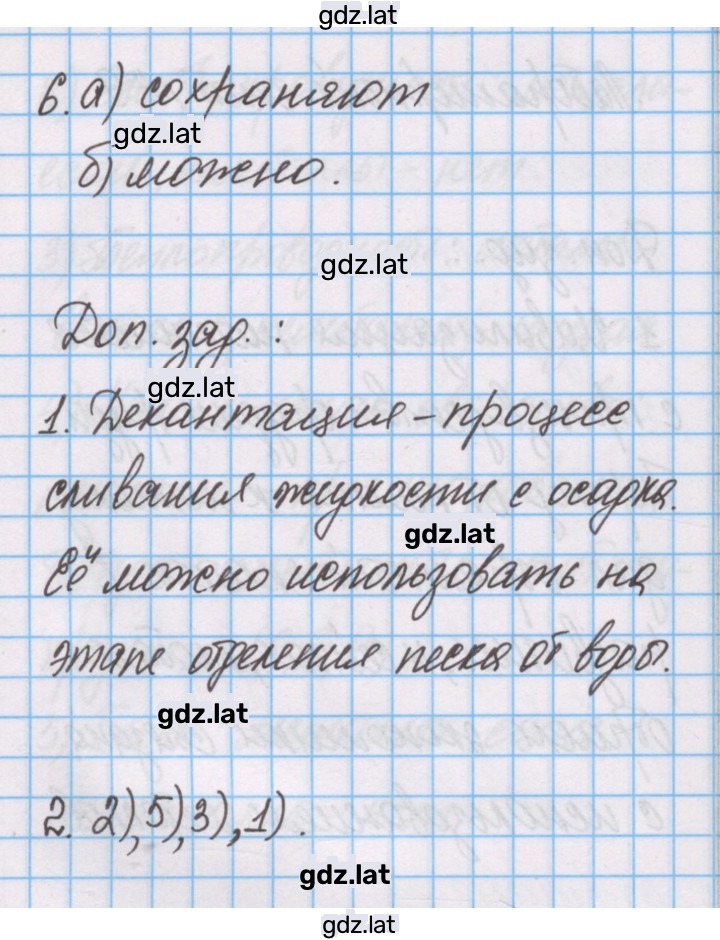 gdz.lat
6. а) сохраняют
gdz.lat
б) можно.
gdz.lat
Доп. зад.:
gdz.lat
1. Декантация – процесс
сливания жидкости с осадка.
gdz.lat
Её можно использовать на
этапе отделения песка от воды.
gdz.lat
2. 2), 5), 3), 1).
gdz.lat
gdz.lat